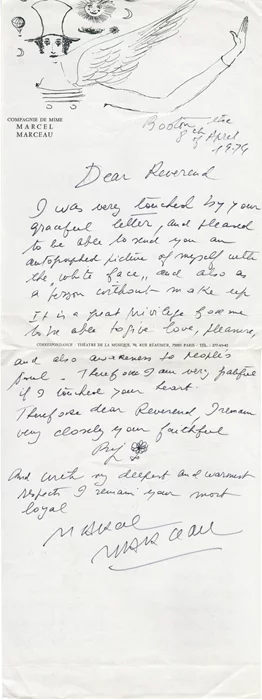 COMPAGNIE DE MIME
MARCEL
MARCEAU
Boston the
8th of April
1974
Dear Reverend
I was very touched by your
graceful letter, and pleased
to be able to send you an
autographed picture of myself with
the "white face" and also as
a person without make up
It is a great privilege for me
to be able to give love, pleasure,
CORRESPONDANCE : THEATRE DE LA MUSIQUE, 70, RUE REAUMUR, 75003 PARIS - TEL. :
and also awareness to people's
soul. Therefore I am very grateful
if I touched your heart.
Therefore dear Reverend, I remain
very closely your faithful
Bip
And with my deepest and warmest
respects I remain your most
loyal
Marcel
MARCEAU